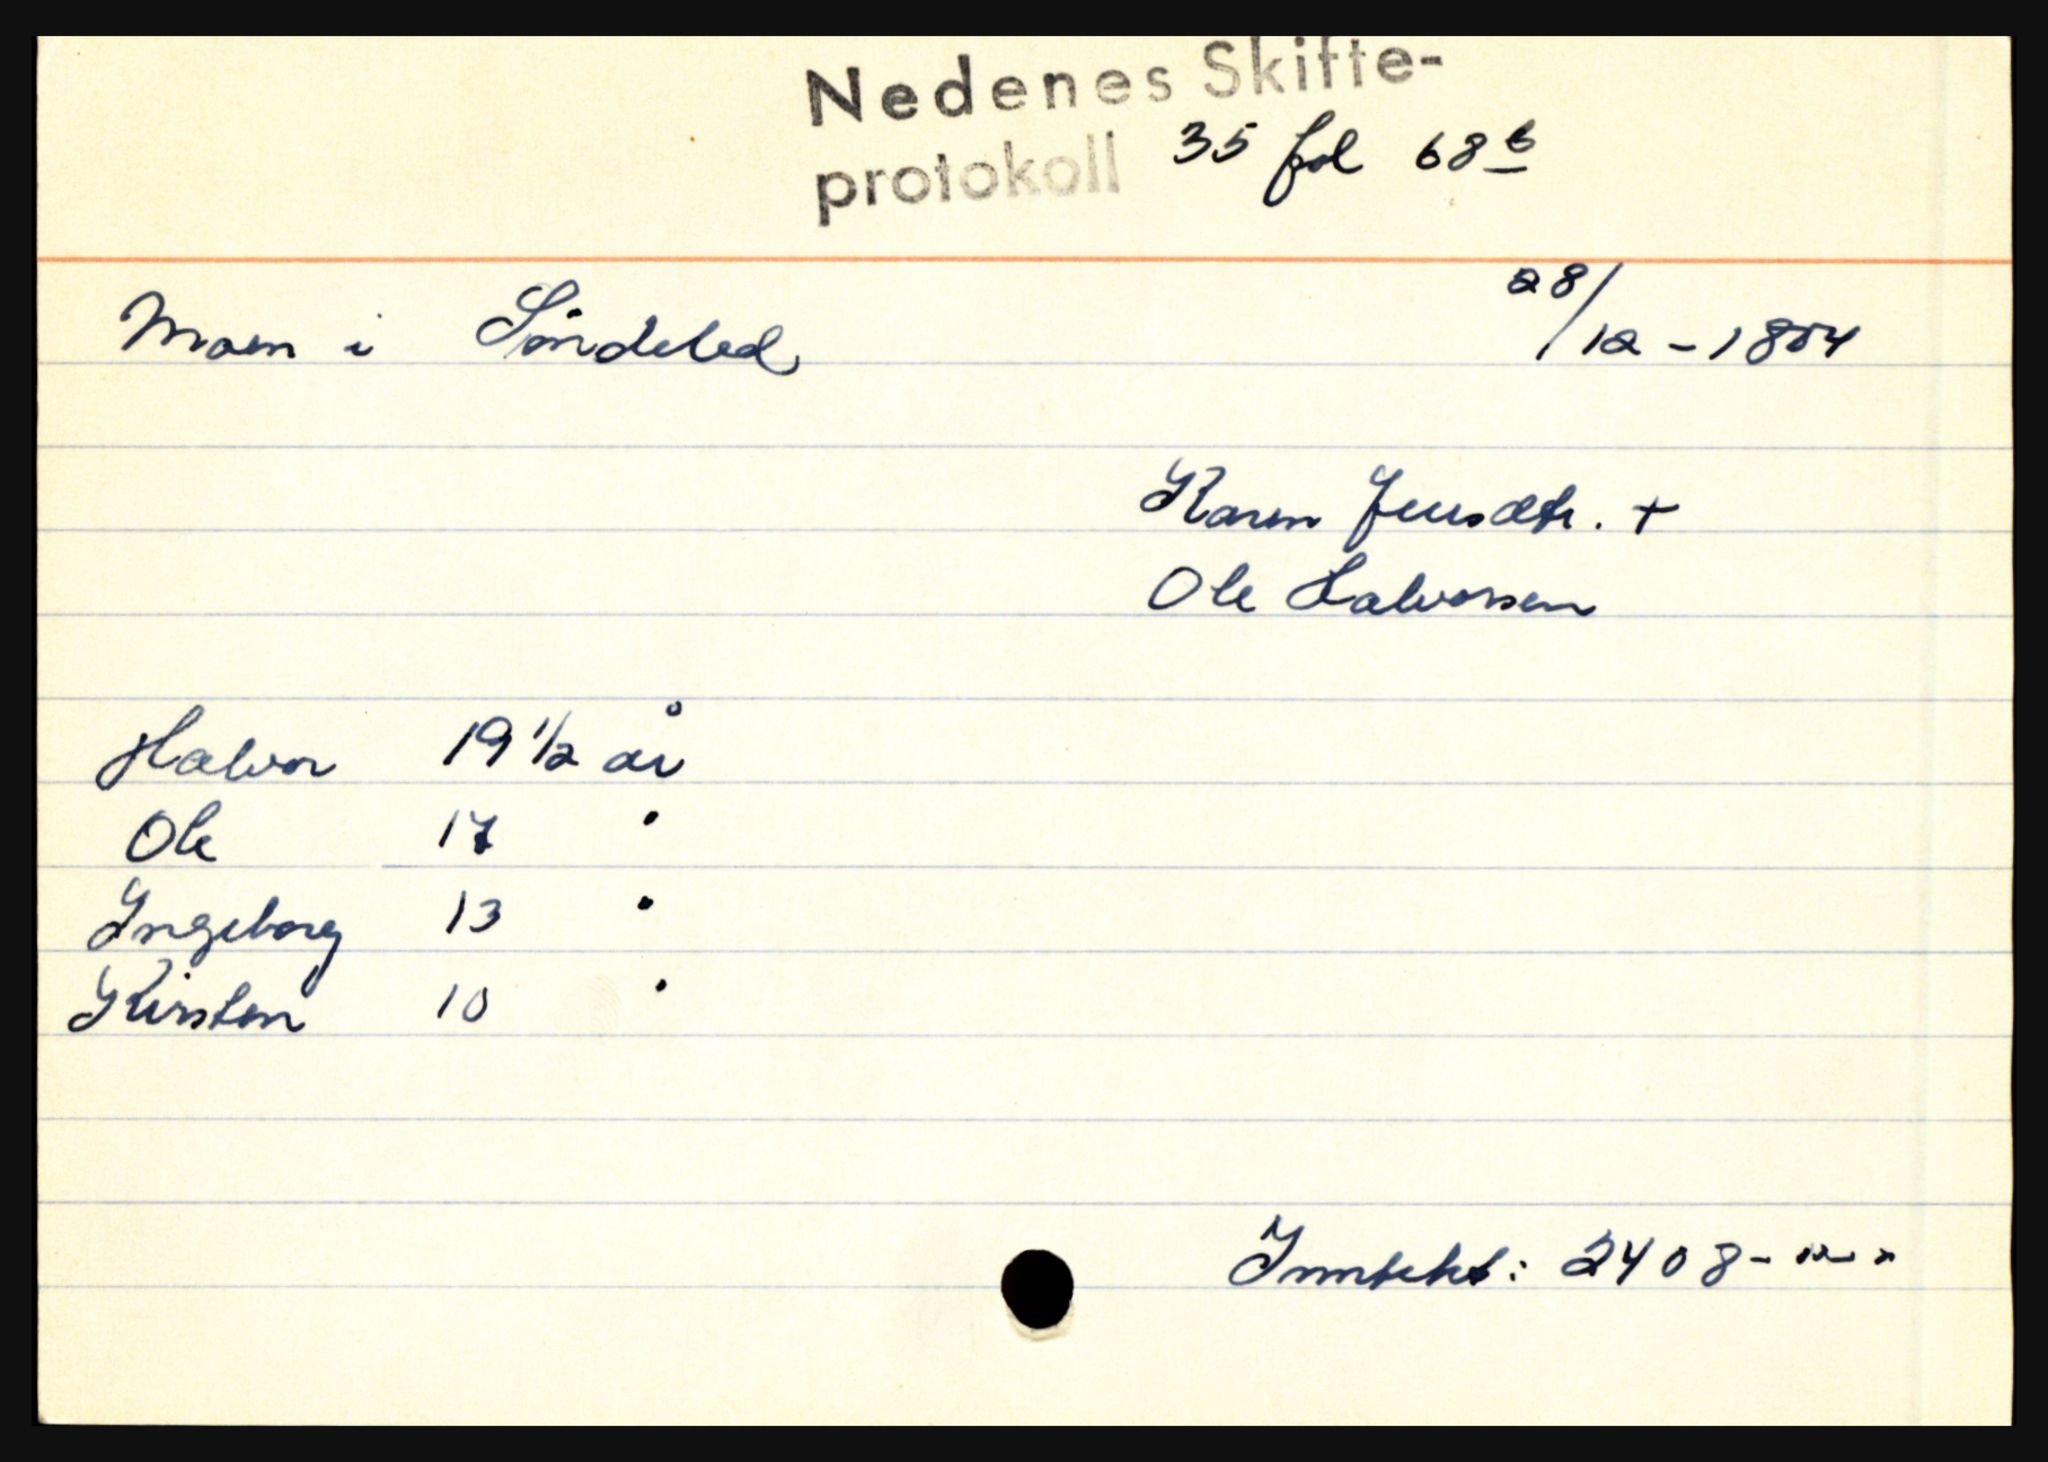 Nedenes Skifte-
protokoll 35 fol 68b
Moen i Søndeled 28/12 - 1804
Karen Jensdtr. +
Ole Halvorsen
Halvor 19 1/2 år
Ole 17 "
Ingeborg 13 "
Kirsten 10 "
Inntekt: 2408 - " - "